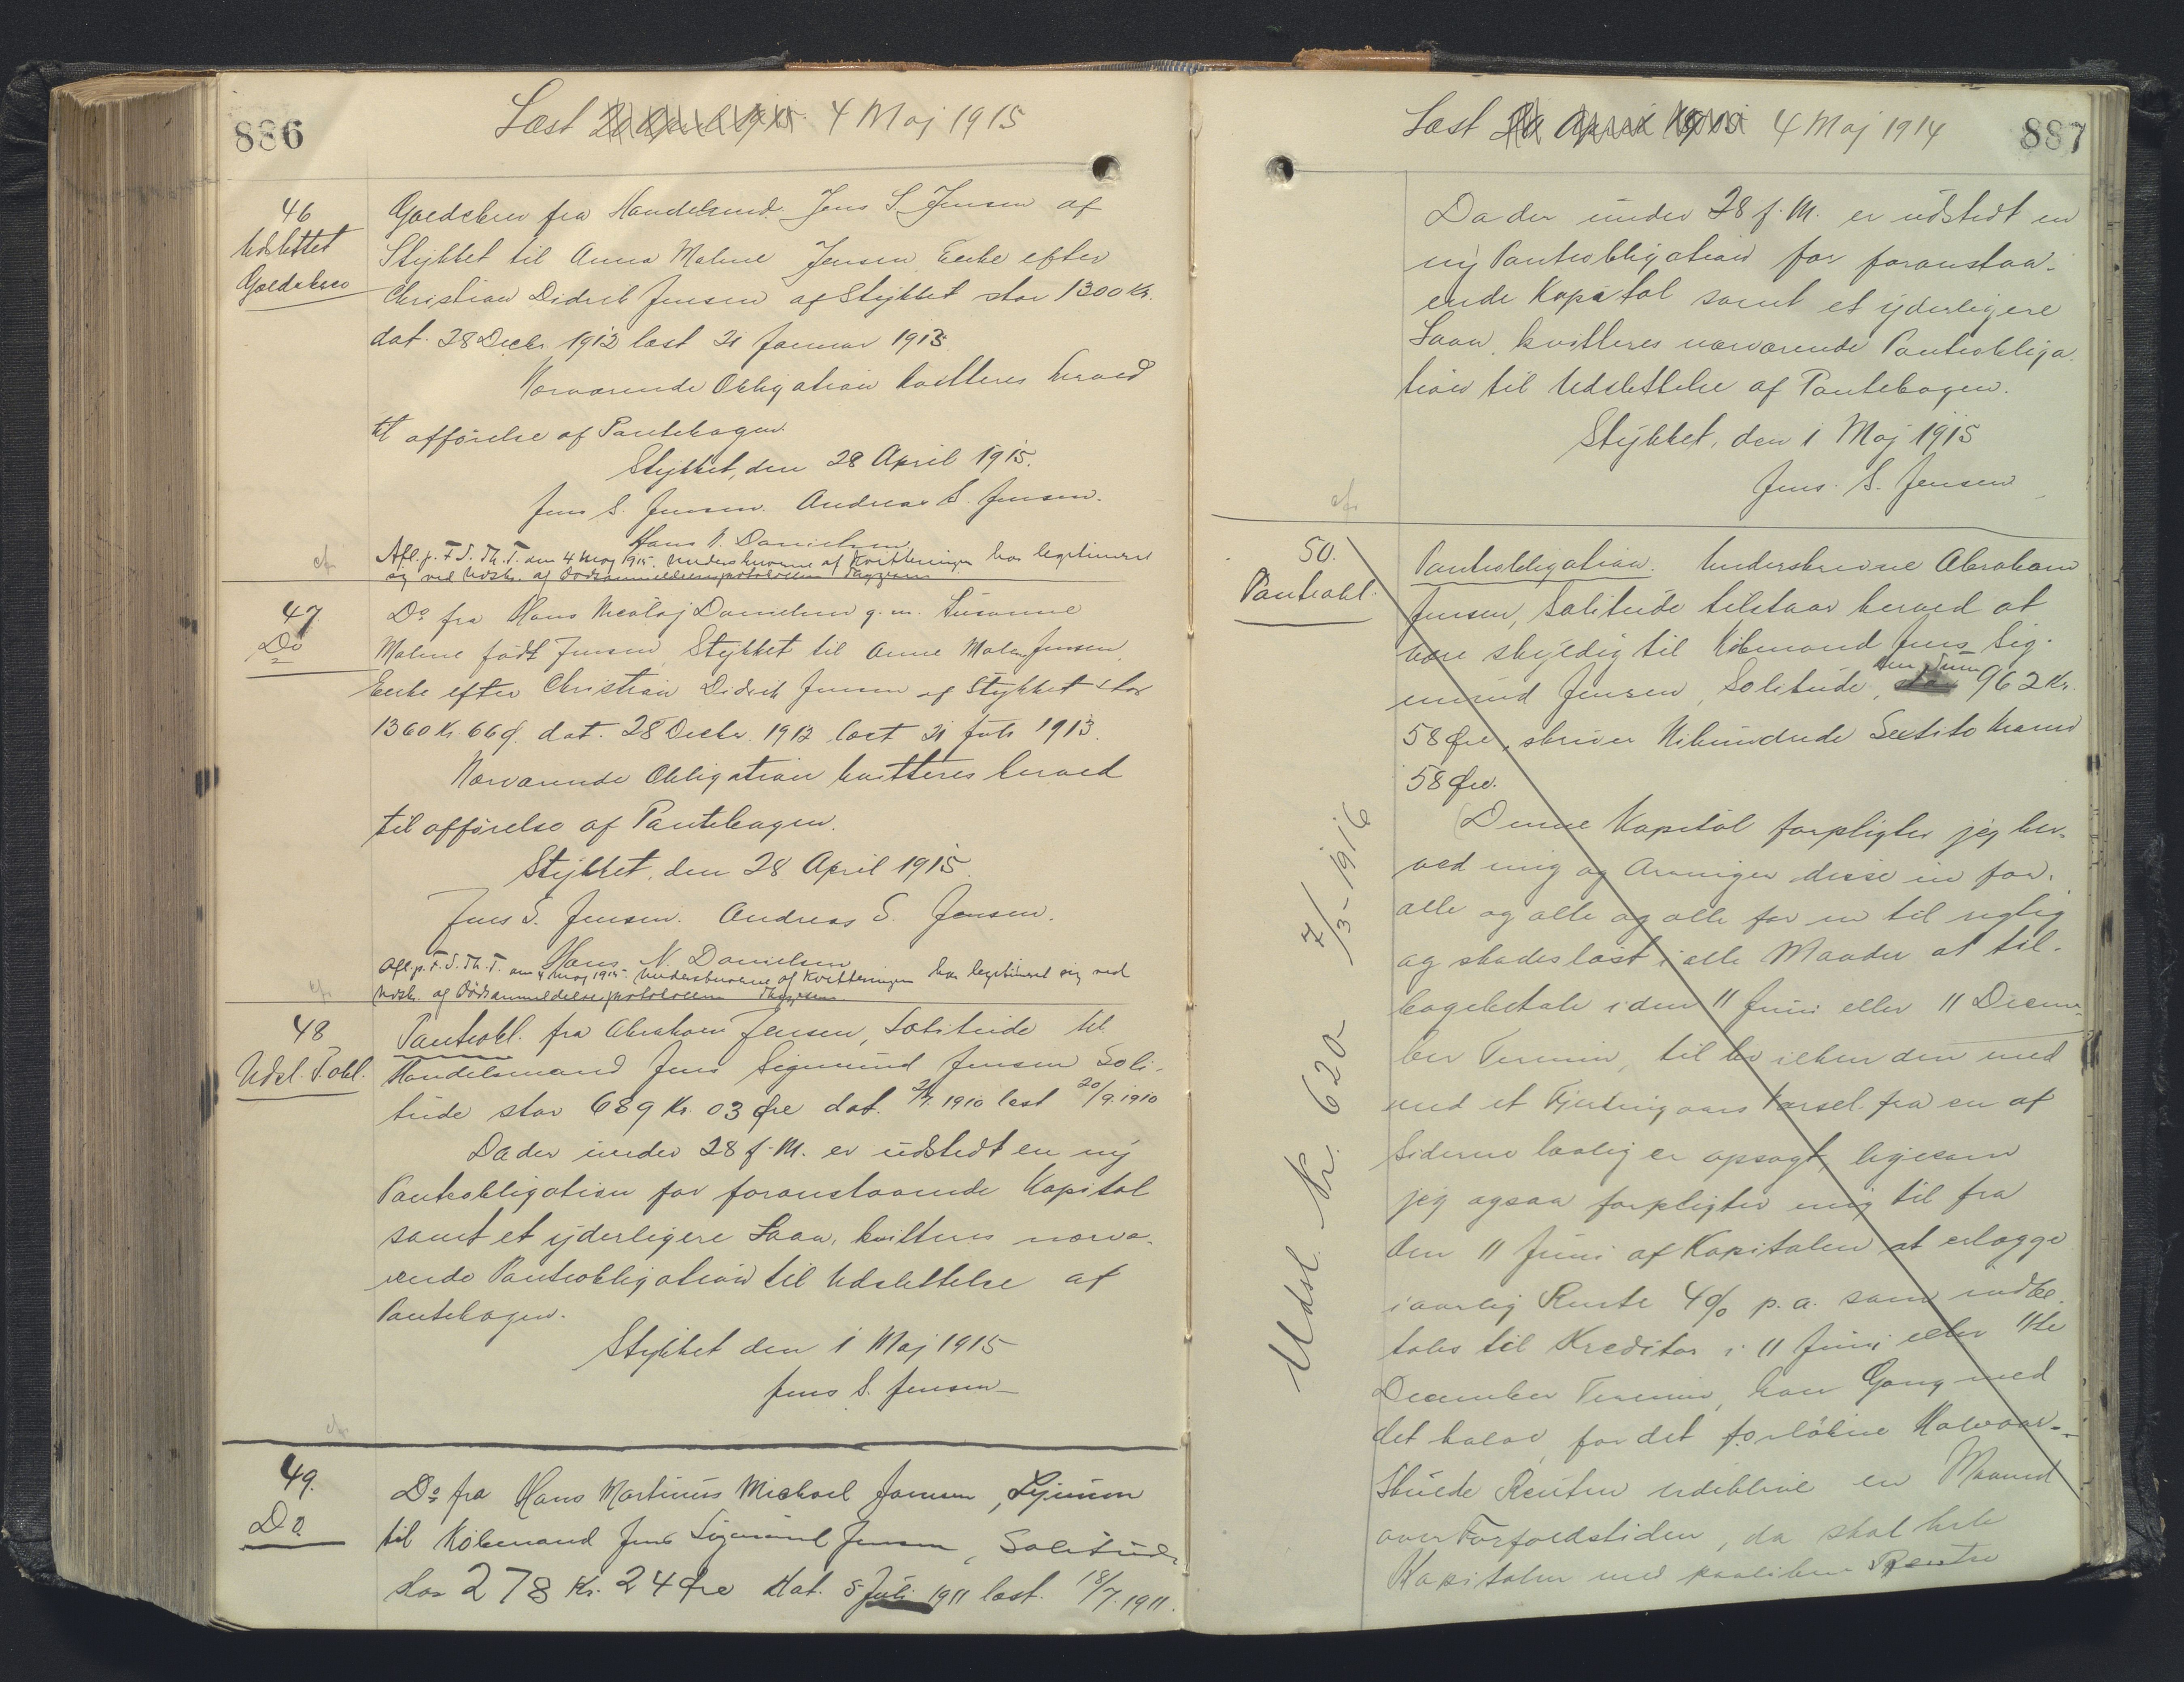 886
Læst 4 Maj 1915
46
Udslettet
Gældsbrev
Gældsbrev fra Handelsmd. Jens S Jensen af
Stykket til Anna Malene Jensen Enke efter
Christian Didrik Jensen af Stykket stor 1300 Kr.
dat. 28 Decbr 1912 læst 21 Januar 1913
Nærværende Obligation kvitteres herved
til afførelse af Pantebogen.
Stykket, den 28 April 1915.
Jens S. Jensen. Andreas S. Jensen.
Hans N. Danielsen
Afl. p. F. S. Th. T. den 4 Maj 1915. Underskriverne af Kvitteringen har legitimeret
sig ved Udskr. af Dødsanmeldelsesprotokollen
cfr
47
Do
Do fra Hans Nicolaj Danielsen g. m. Susanne
Malene født Jensen, Stykket til Anne Malene Jensen,
Enke efter Christian Didrik Jensen af Stykket stor
1360 Kr. 66 Ø. dat. 28 Decbr. 1912 læst 21 1913.
Nærværende Obligation kvitteres herved
til afførelse af Pantebogen.
Stykket, den 28 April 1915.
Jens S. Jensen. Andreas S. Jensen.
Hans N. Danielsen
Afl. p. F. S. Th. T. den 4 Maj 1915. Underskriverne af Kvitteringen har legitimeret sig ved
Udskr. af Dødsanmeldelsesprotokollen
cfr.
48
Udsl. P obl.
Panteobl. fra Abraham Jensen, Solitude til
Handelsmand Jens Sigmund Jensen Soli-
tude stor 689 Kr. 03 Øre dat. 1910 læst 20/9. 1910
Da der under 28 f. M. er udstedt en ny
Panteobligation for foranstaaende Kapital
samt et yderligere Laan, kvitteres nærvæ-
rende Panteobligation til Udslettelse af
Pantebogen.
Stykket den 1 Maj 1915
Jens S. Jensen
cfr
49.
Do
Do fra Hans Martinus Michael Jensen,
til Købmand Jens Sigmund Jensen, Solitude
stor 278 Kr. 24 Øre dat. 5 Juli 1911 læst. 18/7. 1911.
887
Læst 4 Maj 1914
Da der under 28 f. M. er udstedt en
ny Panteobligation for foranstaa-
ende Kapital samt et yderligere
Laan, kvitteres nærværende Panteobliga-
tion til Udslettelse af Pantebogen.
Stykket, den 1 Maj 1915
Jens. S. Jensen
cfr
50.
Panteobl.
Panteobligation. Underskrevne Abraham
Jensen, Solitude tilstaar herved at
være skyldig til Købmand Jens Sig-
mund Jensen, Solitude, den Sum 962 Kr.
58 Øre, skriver Nihundrede Sexti to Kroner
58 Øre.
Denne Kapital forpligter jeg her-
ved mig og Arvinger disse en for
alle og alle og alle for en til rigtig
og skadesløst i alle Maader at til-
bagebetale i den 11 Juni eller 11 Decem-
ber Termin, til hvilken den med
med et Fjerdingaars Varsel fra en af
Siderne lovlig er opsagt ligesom
jeg ogsaa forpligter mig til fra
den 11 Juni af Kapitalen at erlægge
i aarlig Rente 4% p. a. som indbe-
tales til Kreditor i 11 Juni eller 11te
December Termin, hver Gang med
det halve for det forløbne Halvaar.
Skulde Renten udeblive en Maaned
over Forfaldstiden, da skal hele
Kapitalen med paaløbne Rente
Udsl. Kr. 620- 7/3-1916